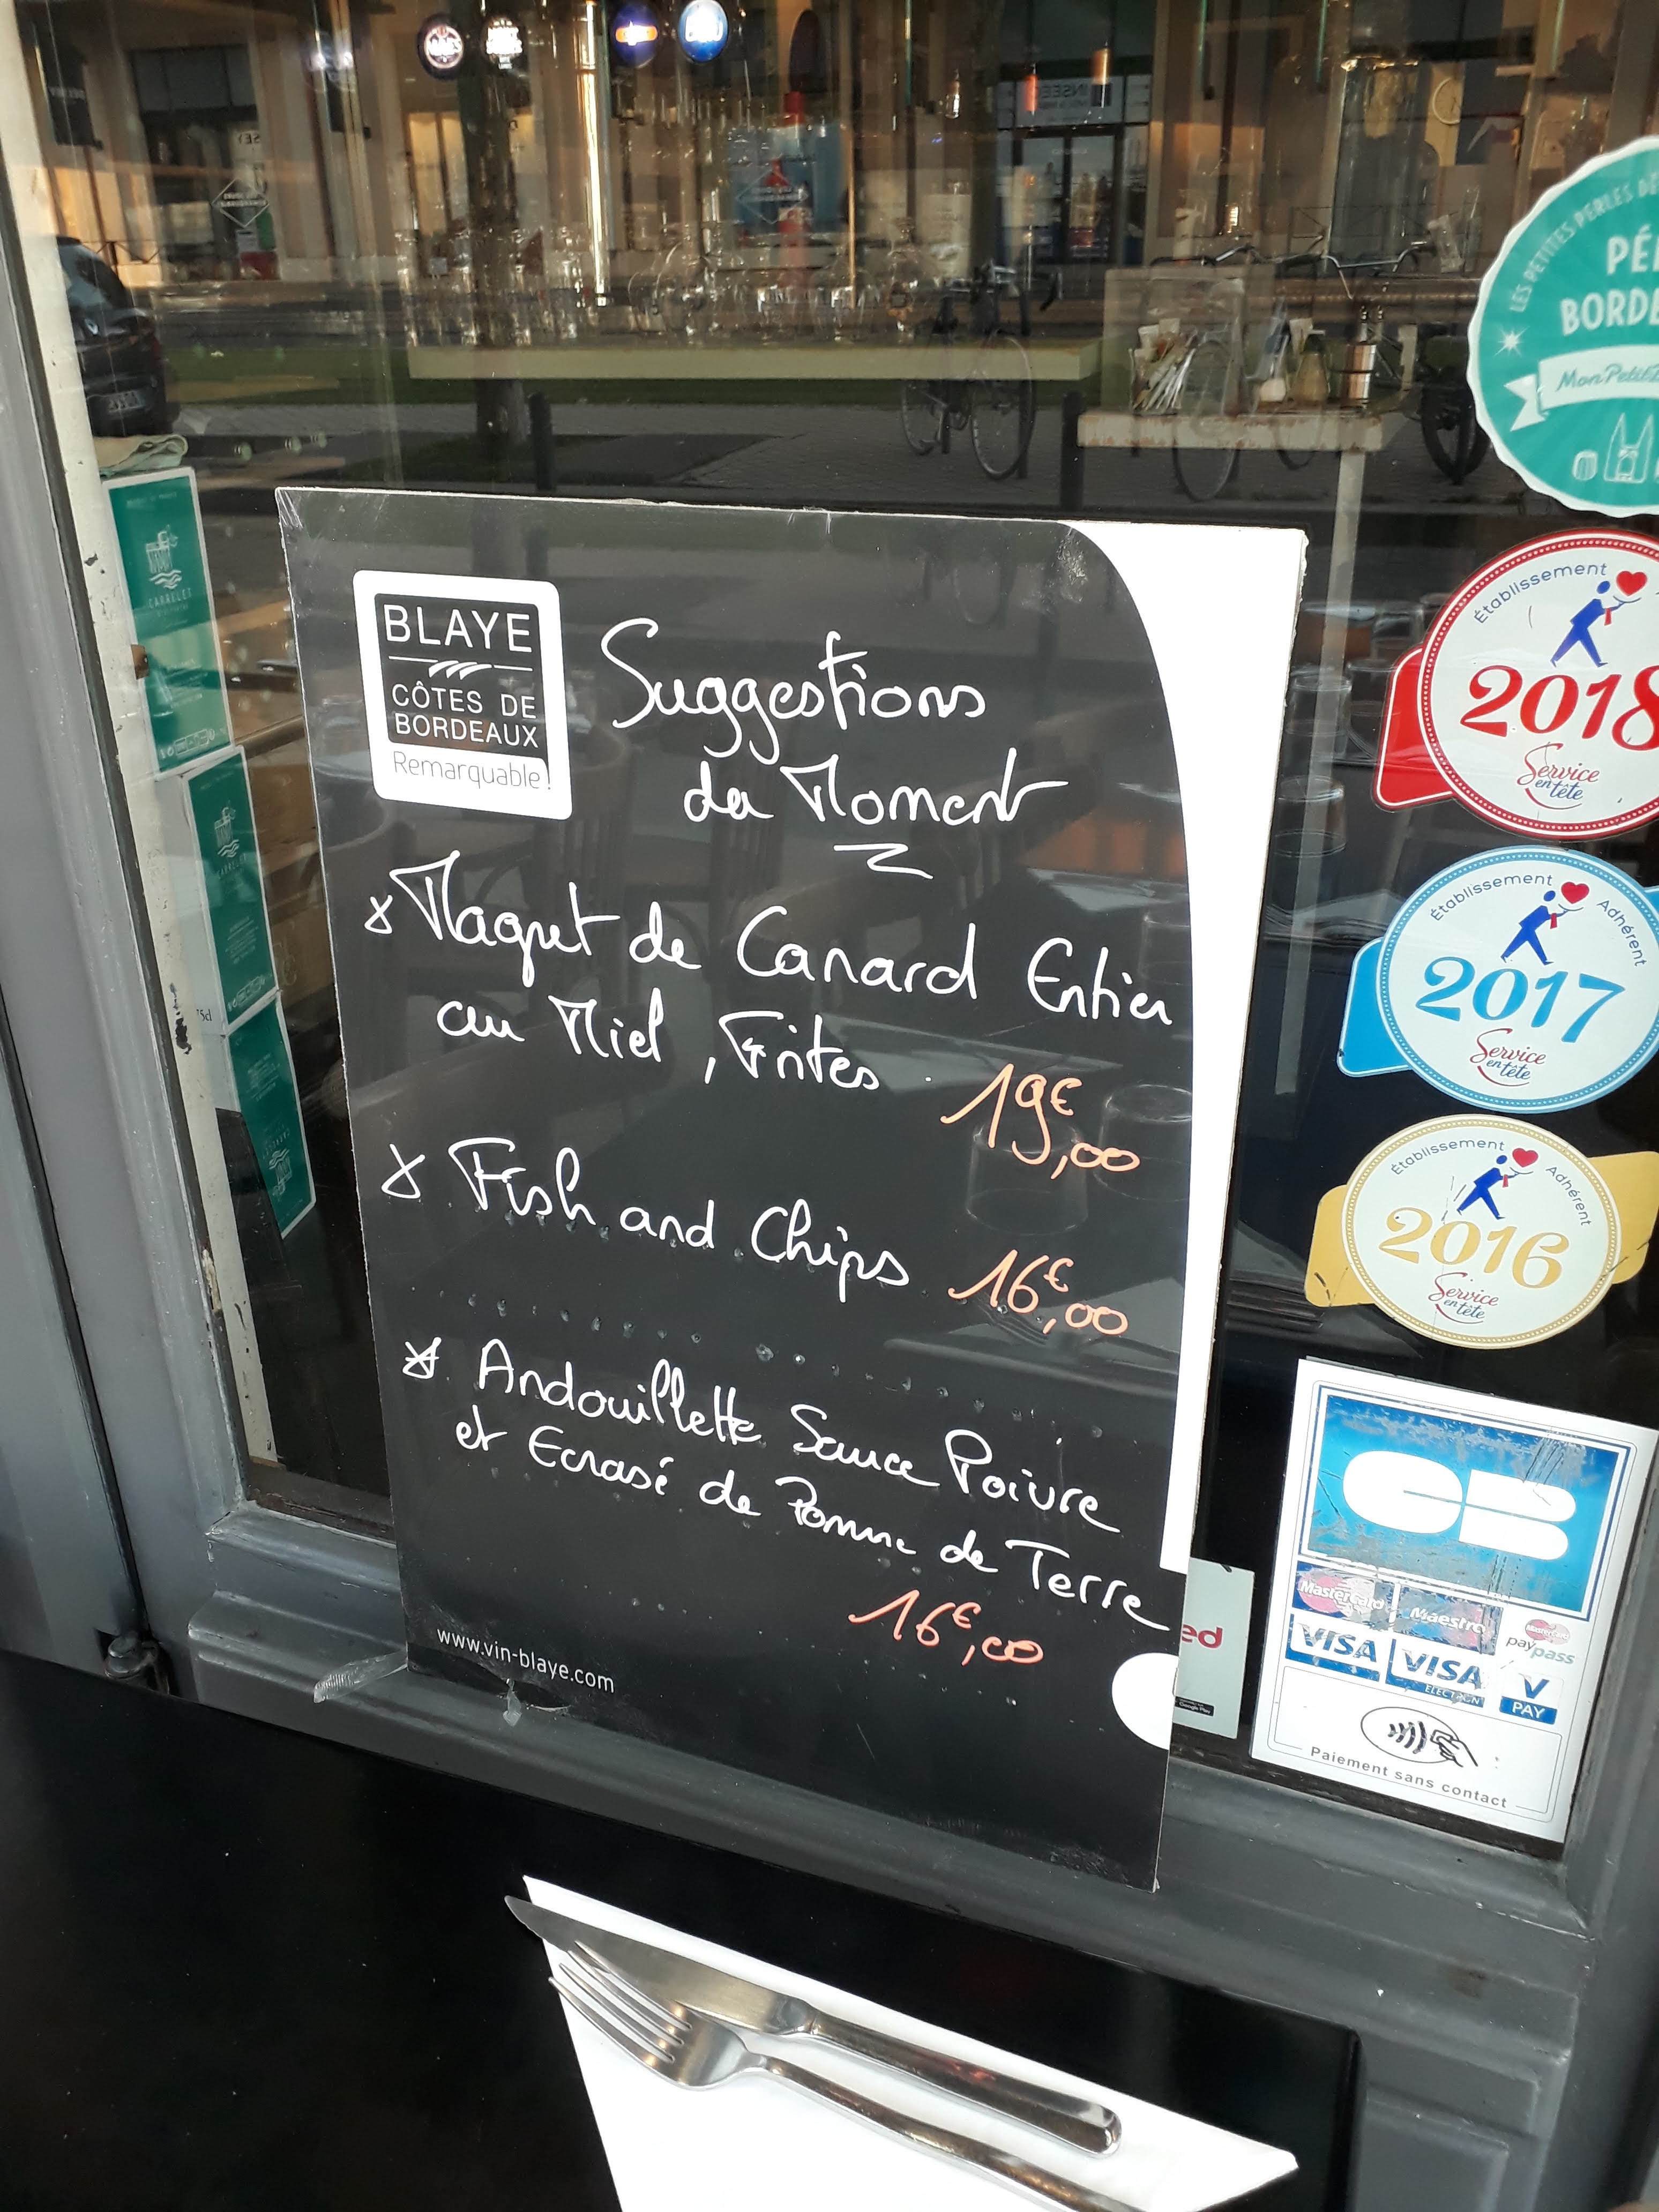 BLAYE
CÔTES DE
BORDEAUX
Remarquable!
Suggestions
du Moment
x Magret de Canard Entier
au Miel, Frites. 19€,00
x Fish and Chips 16€,00
x Andouillette Sauce Poivre
et Ecrasé de Pomme de Terre
16€,00
www.vin-blaye.com
LES PETITES PERLES DE
PÉ
BORDE
MonPetit
Établissement
2018
Service
en tête
Établissement Adhérent
2017
Service
en tête
Établissement Adhérent
2016
Service
en tête
ed
CB
MasterCard Maestro MasterCard
paypass
VISA VISA V
ELECTRON PAY
Paiement sans contact
CARRELET
75d